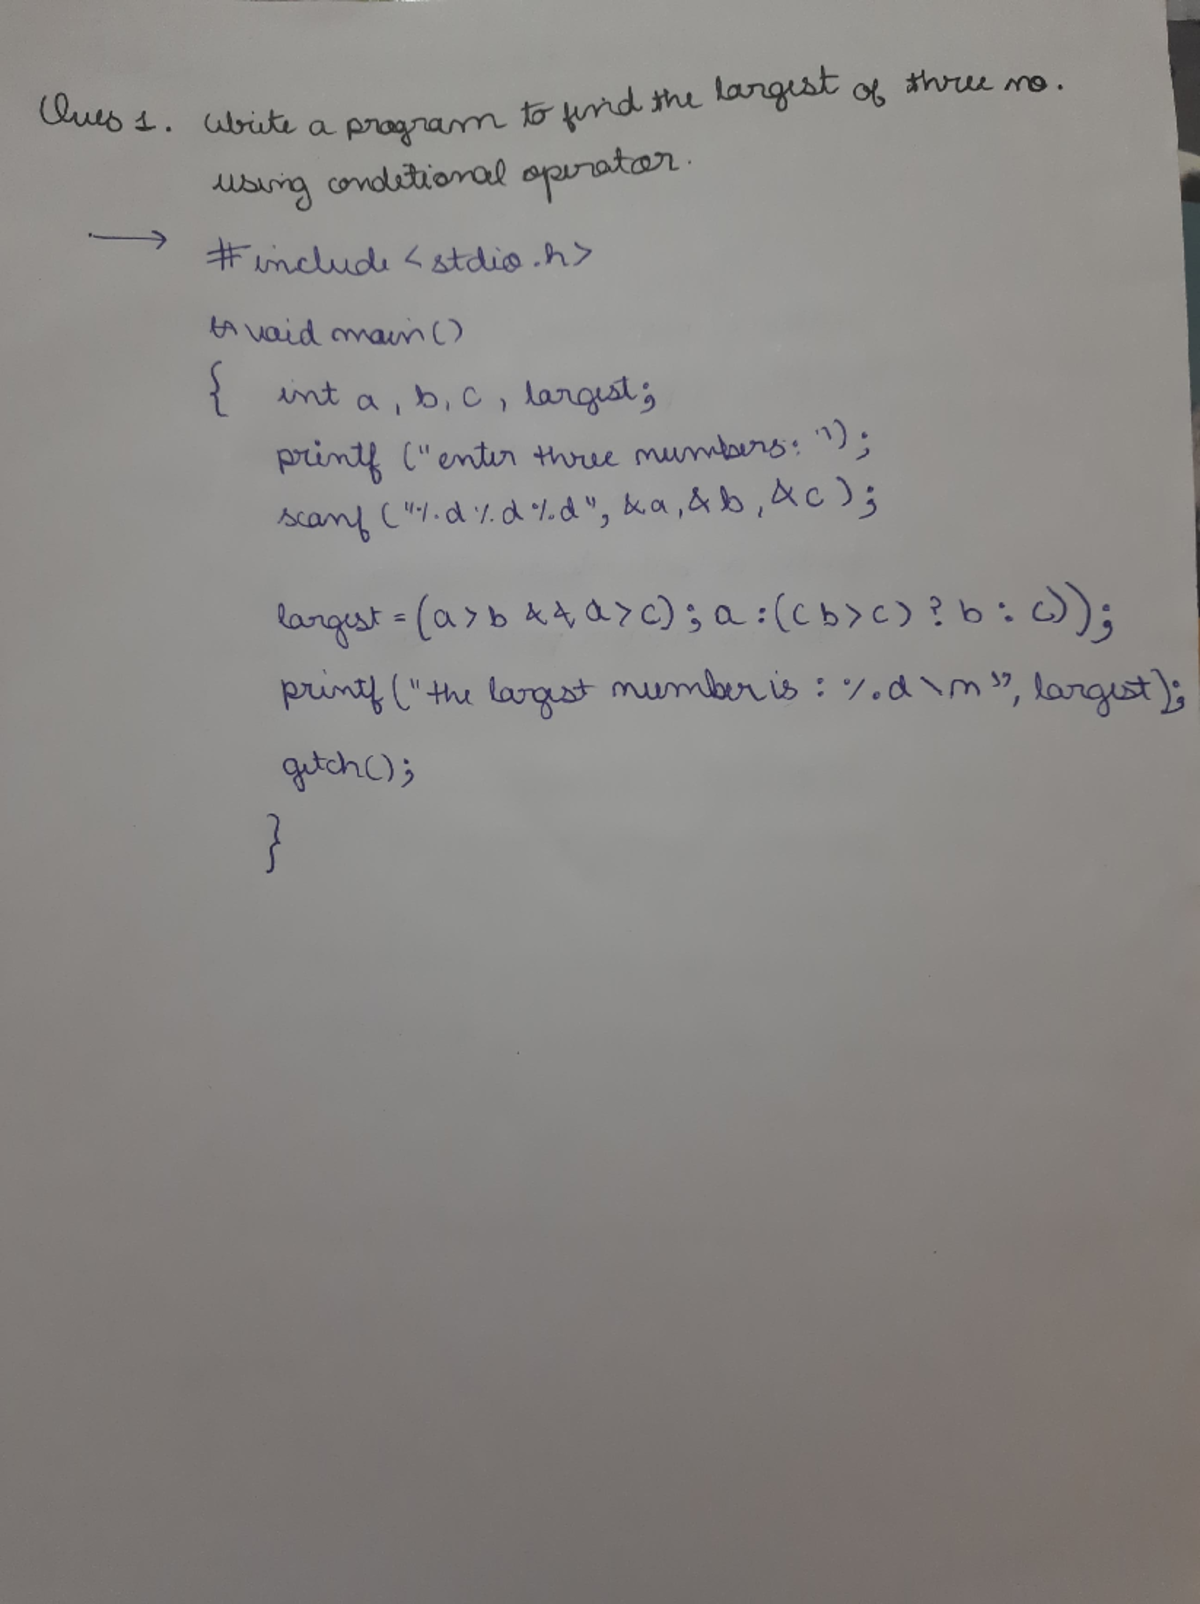 Ques 1. Write a program to find the largest of three no.
using conditional operator.
→ #include <stdio.h>
void main()
{ int a, b, c, largest;
printf ("enter three numbers: ");
scanf ("%d%d%d", &a, &b, &c);
largest = (a>b && a>c); a : ((b>c) ? b : c));
printf ("the largest number is : %d\n", largest);
getch();
}